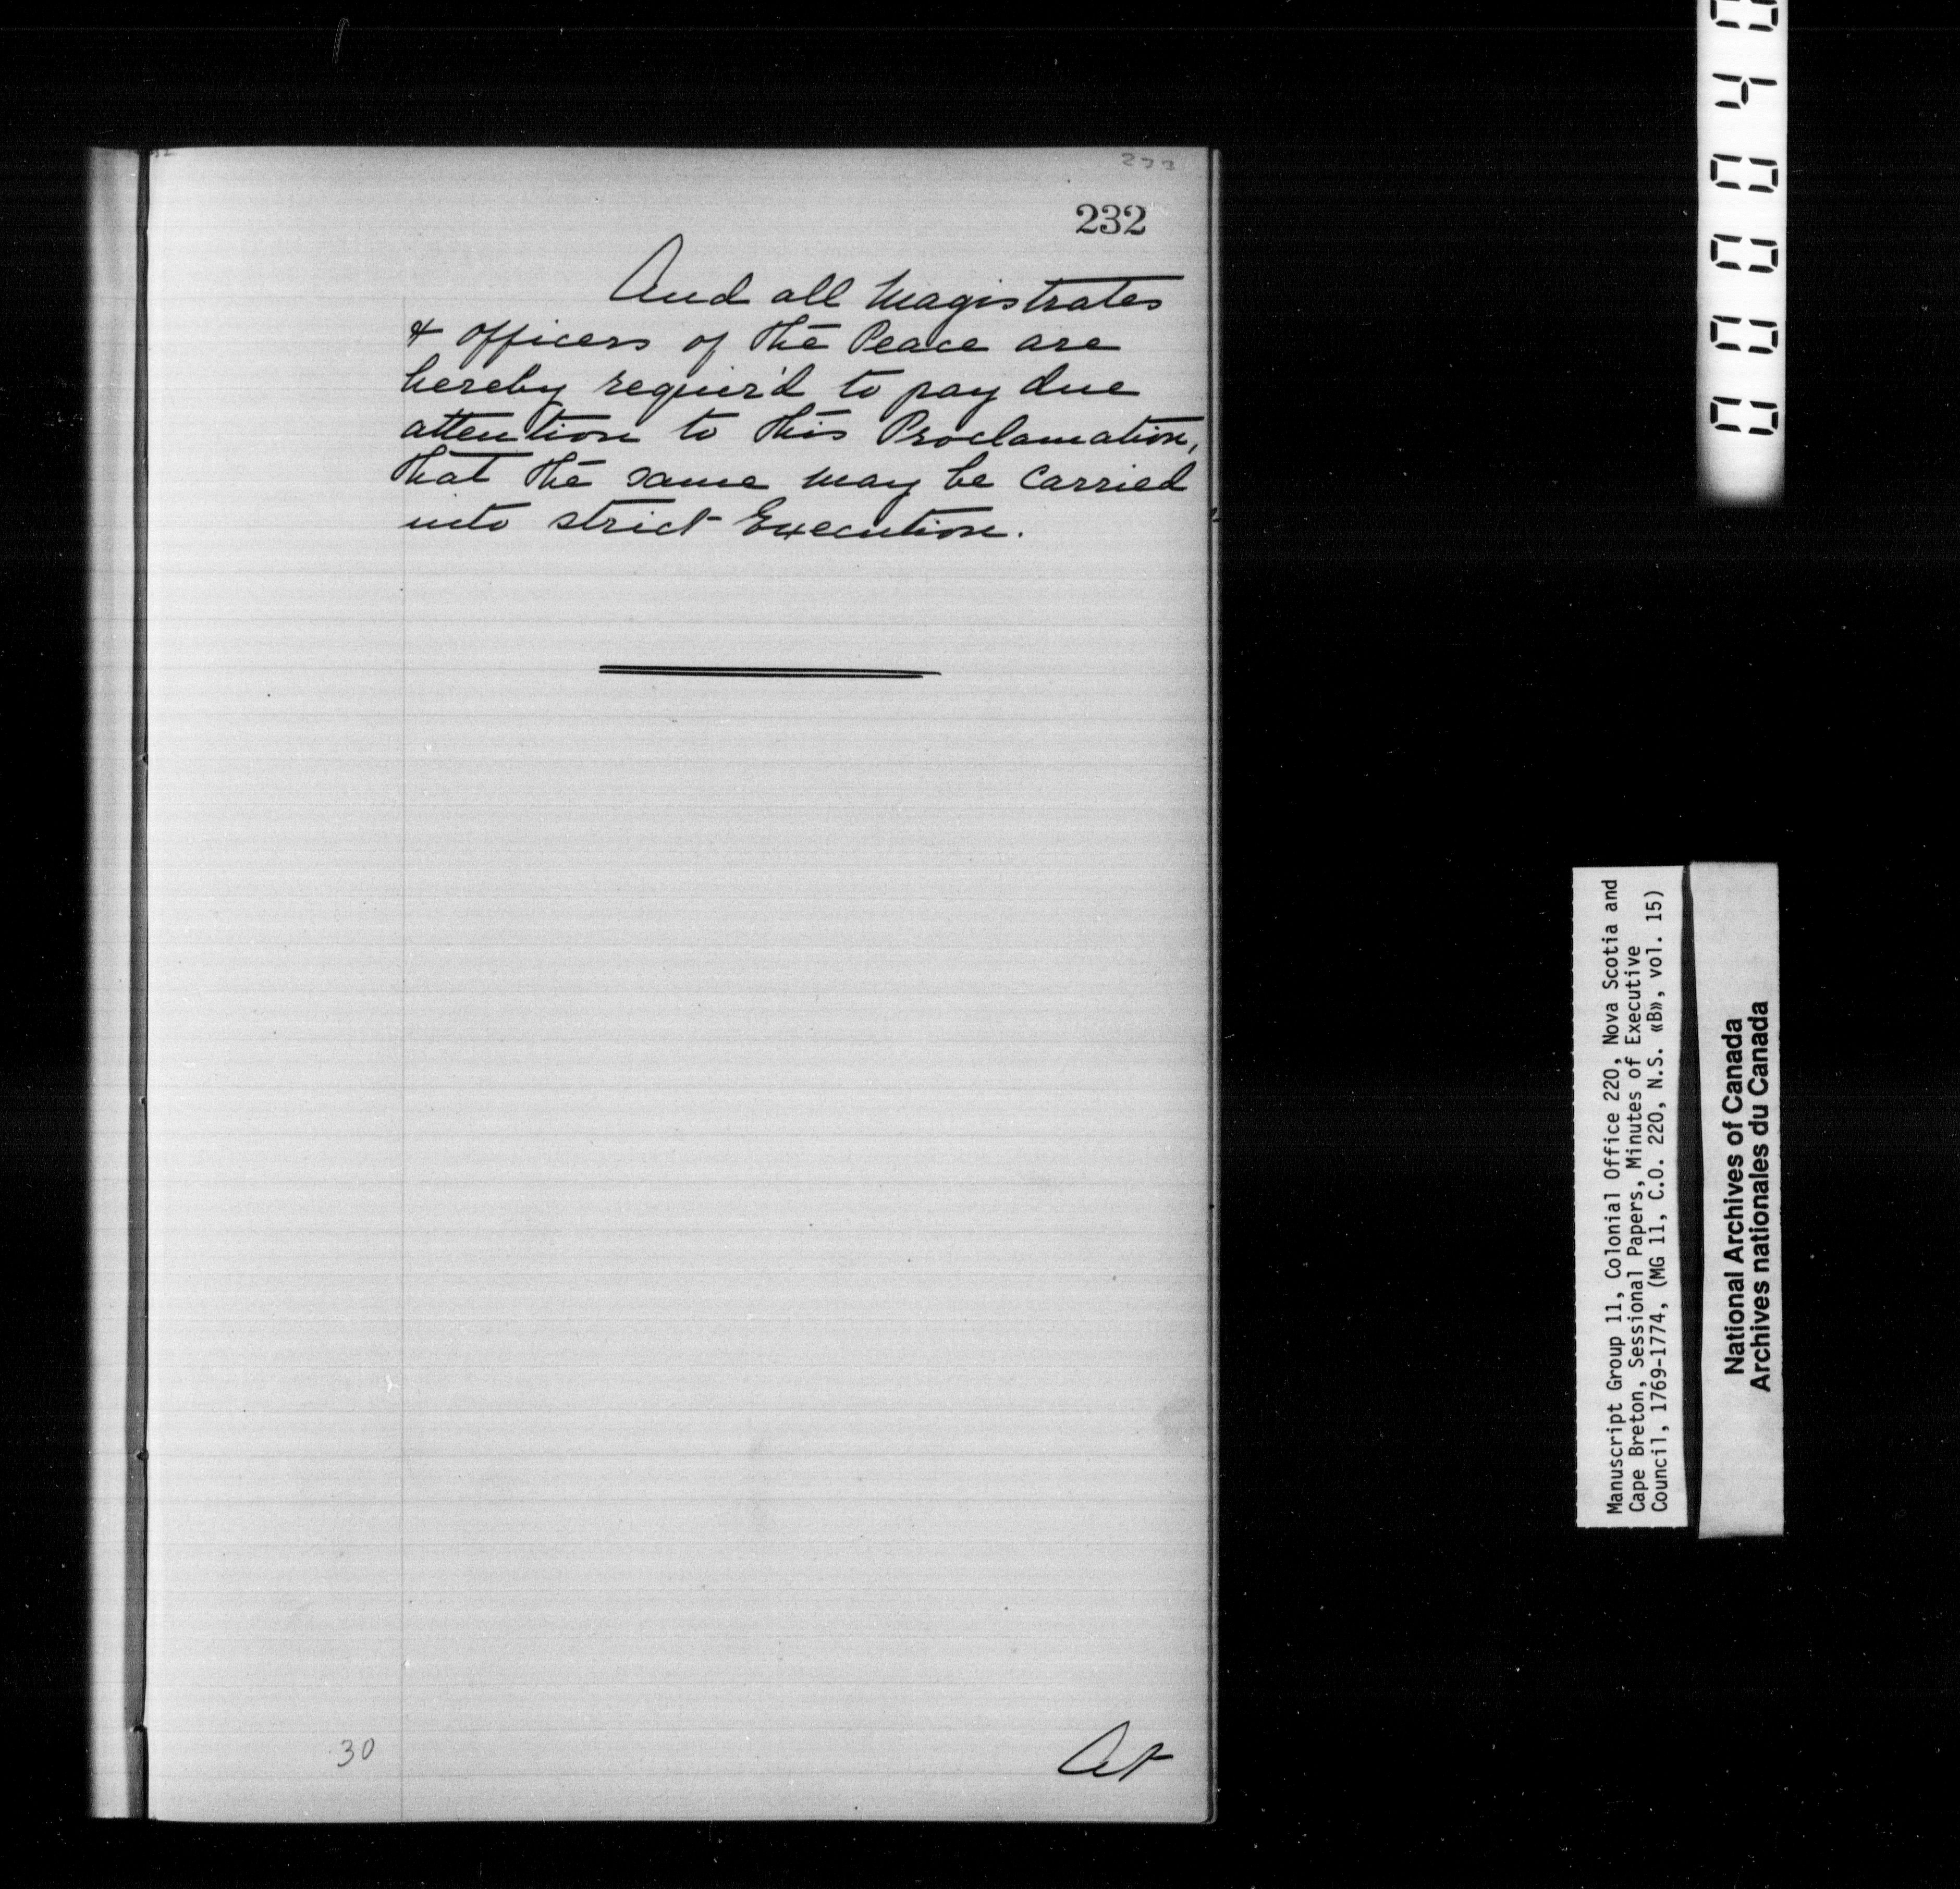 232
And all Magistrates
& officers of the Peace are
hereby requir'd to pay due
attention to this Proclamation,
that the same may be carried
into strict Execution.
30
At
Manuscript Group 11, Colonial Office 220, Nova Scotia and
Cape Breton, Sessional Papers, Minutes of Executive
Council, 1769-1774, (MG 11, C.O. 220, N.S. «B», vol. 15)
National Archives of Canada
Archives nationales du Canada